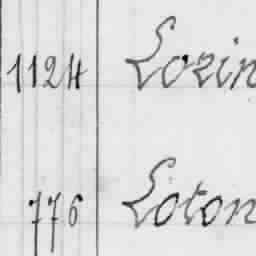 1124 Lozin
776 Loton